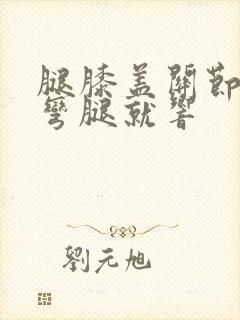 腿膝盖関節
彎腿就響
劉元旭